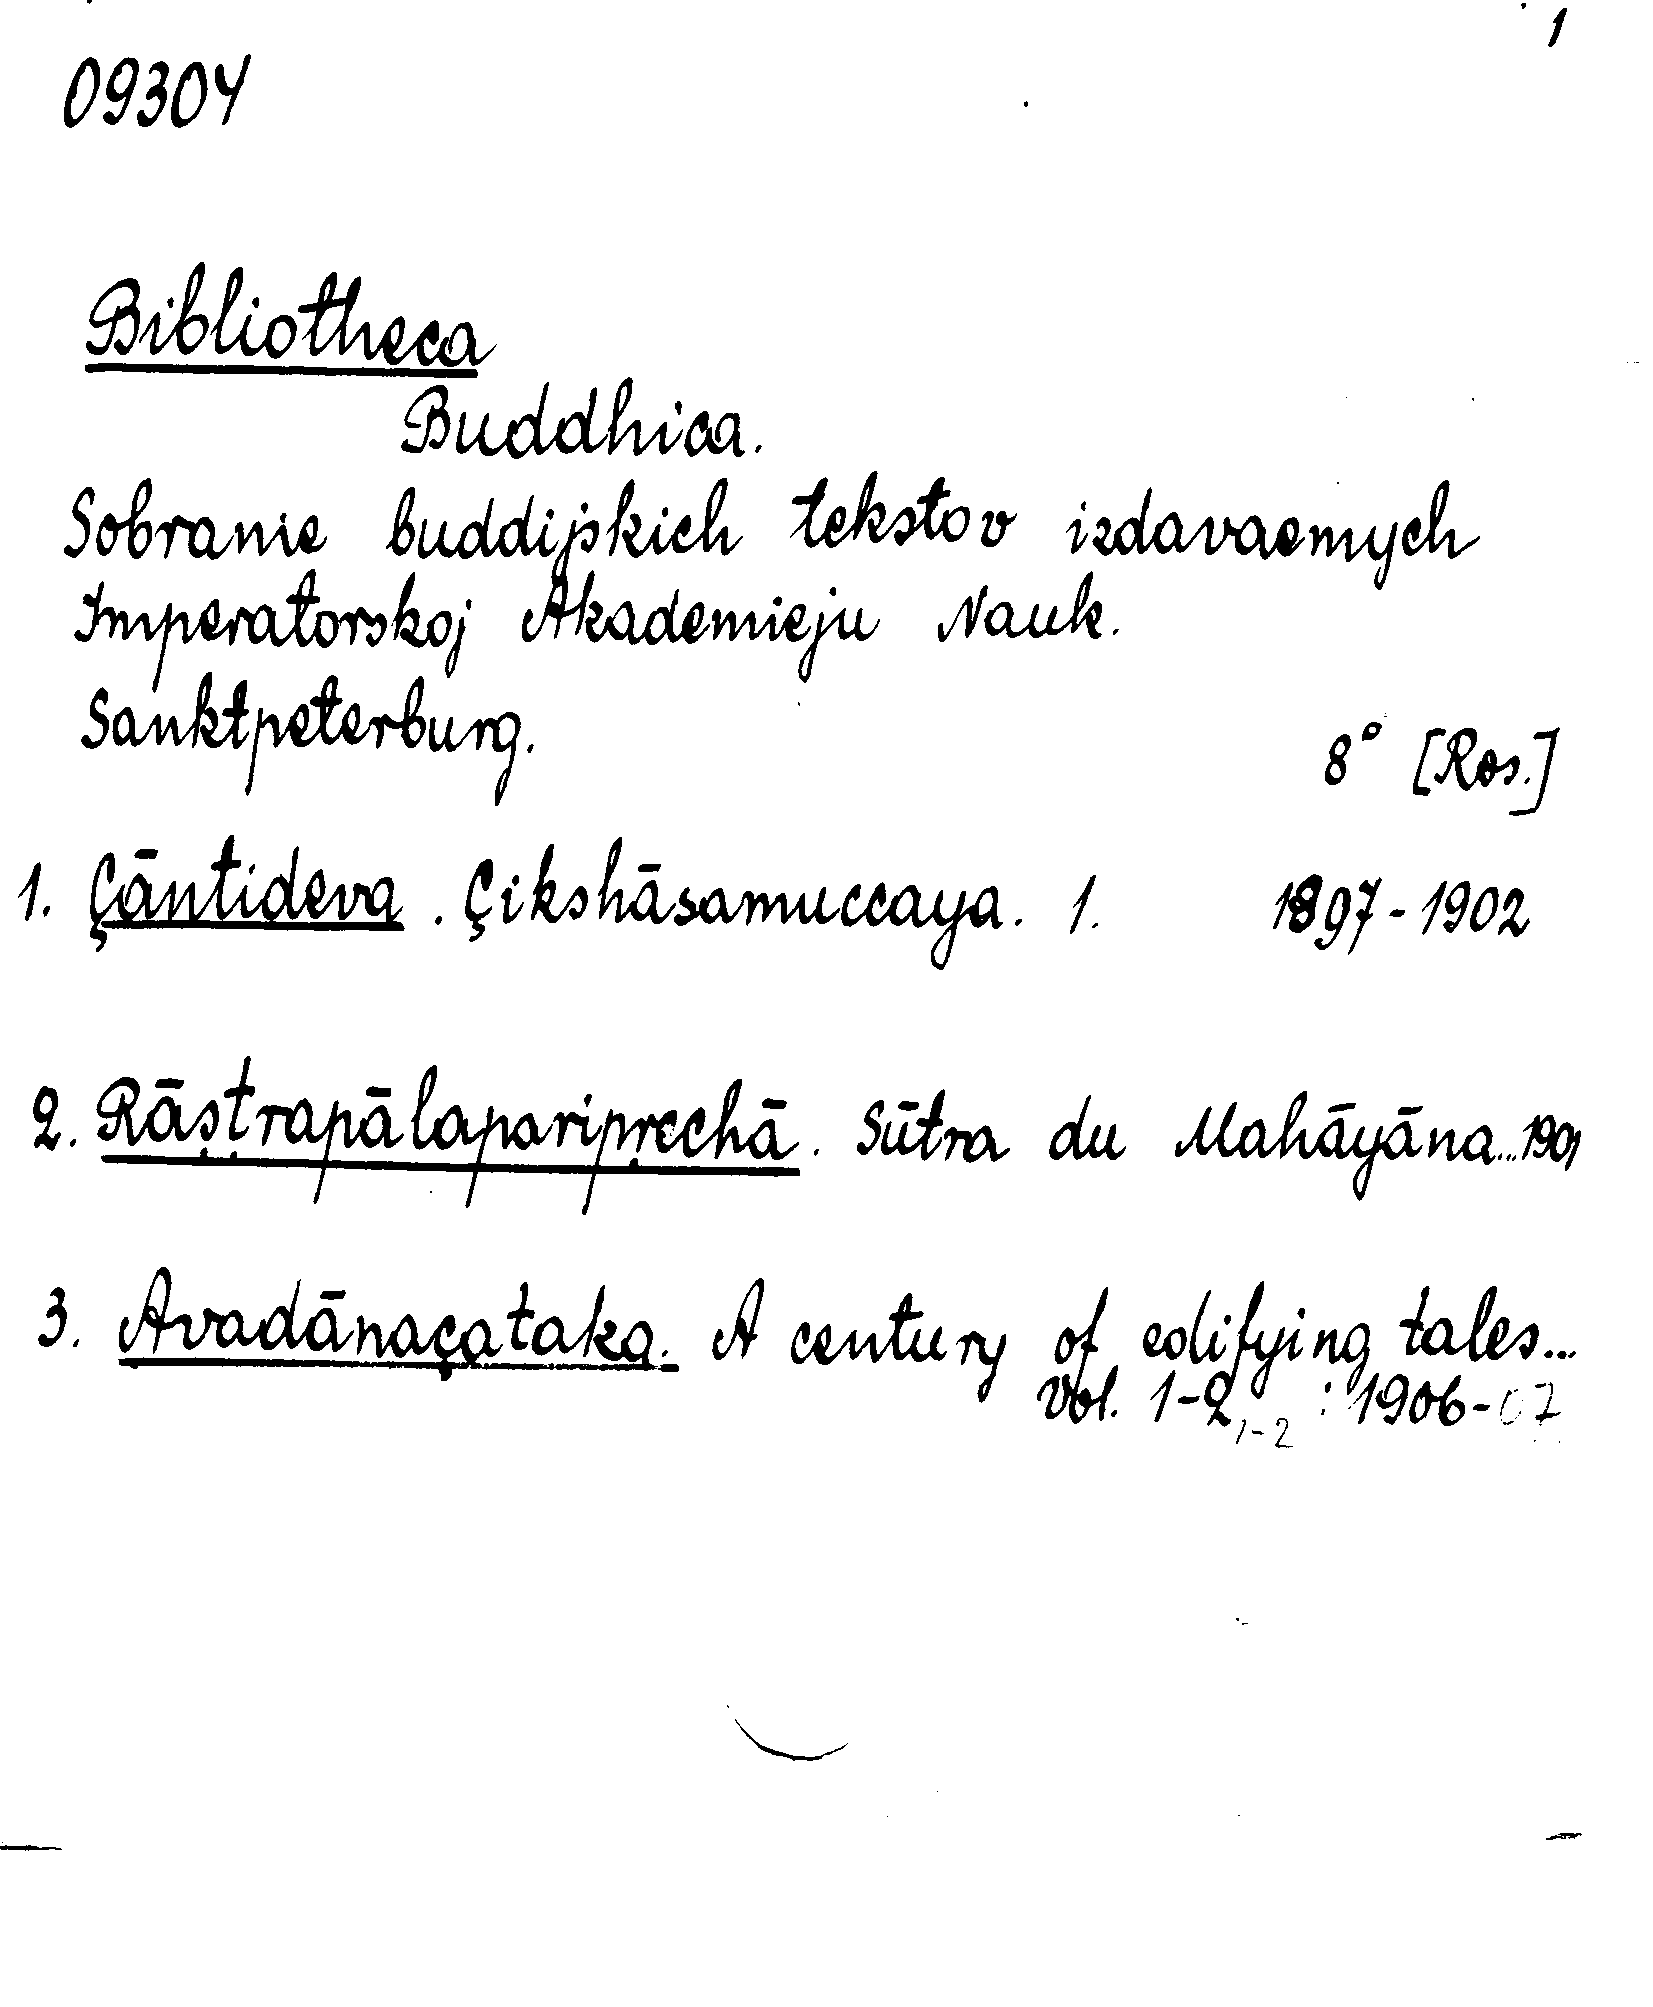 1
09304
Bibliotheca
Buddhica.
Sobranie buddijskich tekstov izdavaemych
Imperatorskoj Akademieju Nauk.
Sanktpeterburg.
8° [Ros.]
1. Çāntideva. Çikshāsamuccaya. 1. 1897-1902
2. Rāṣṭrapālaparipṛcchā. Sūtra du Mahāyāna... 1901
3. Avadānaçataka. A century of edifying tales...
Vol. 1-2, 1-2 : 1906-07